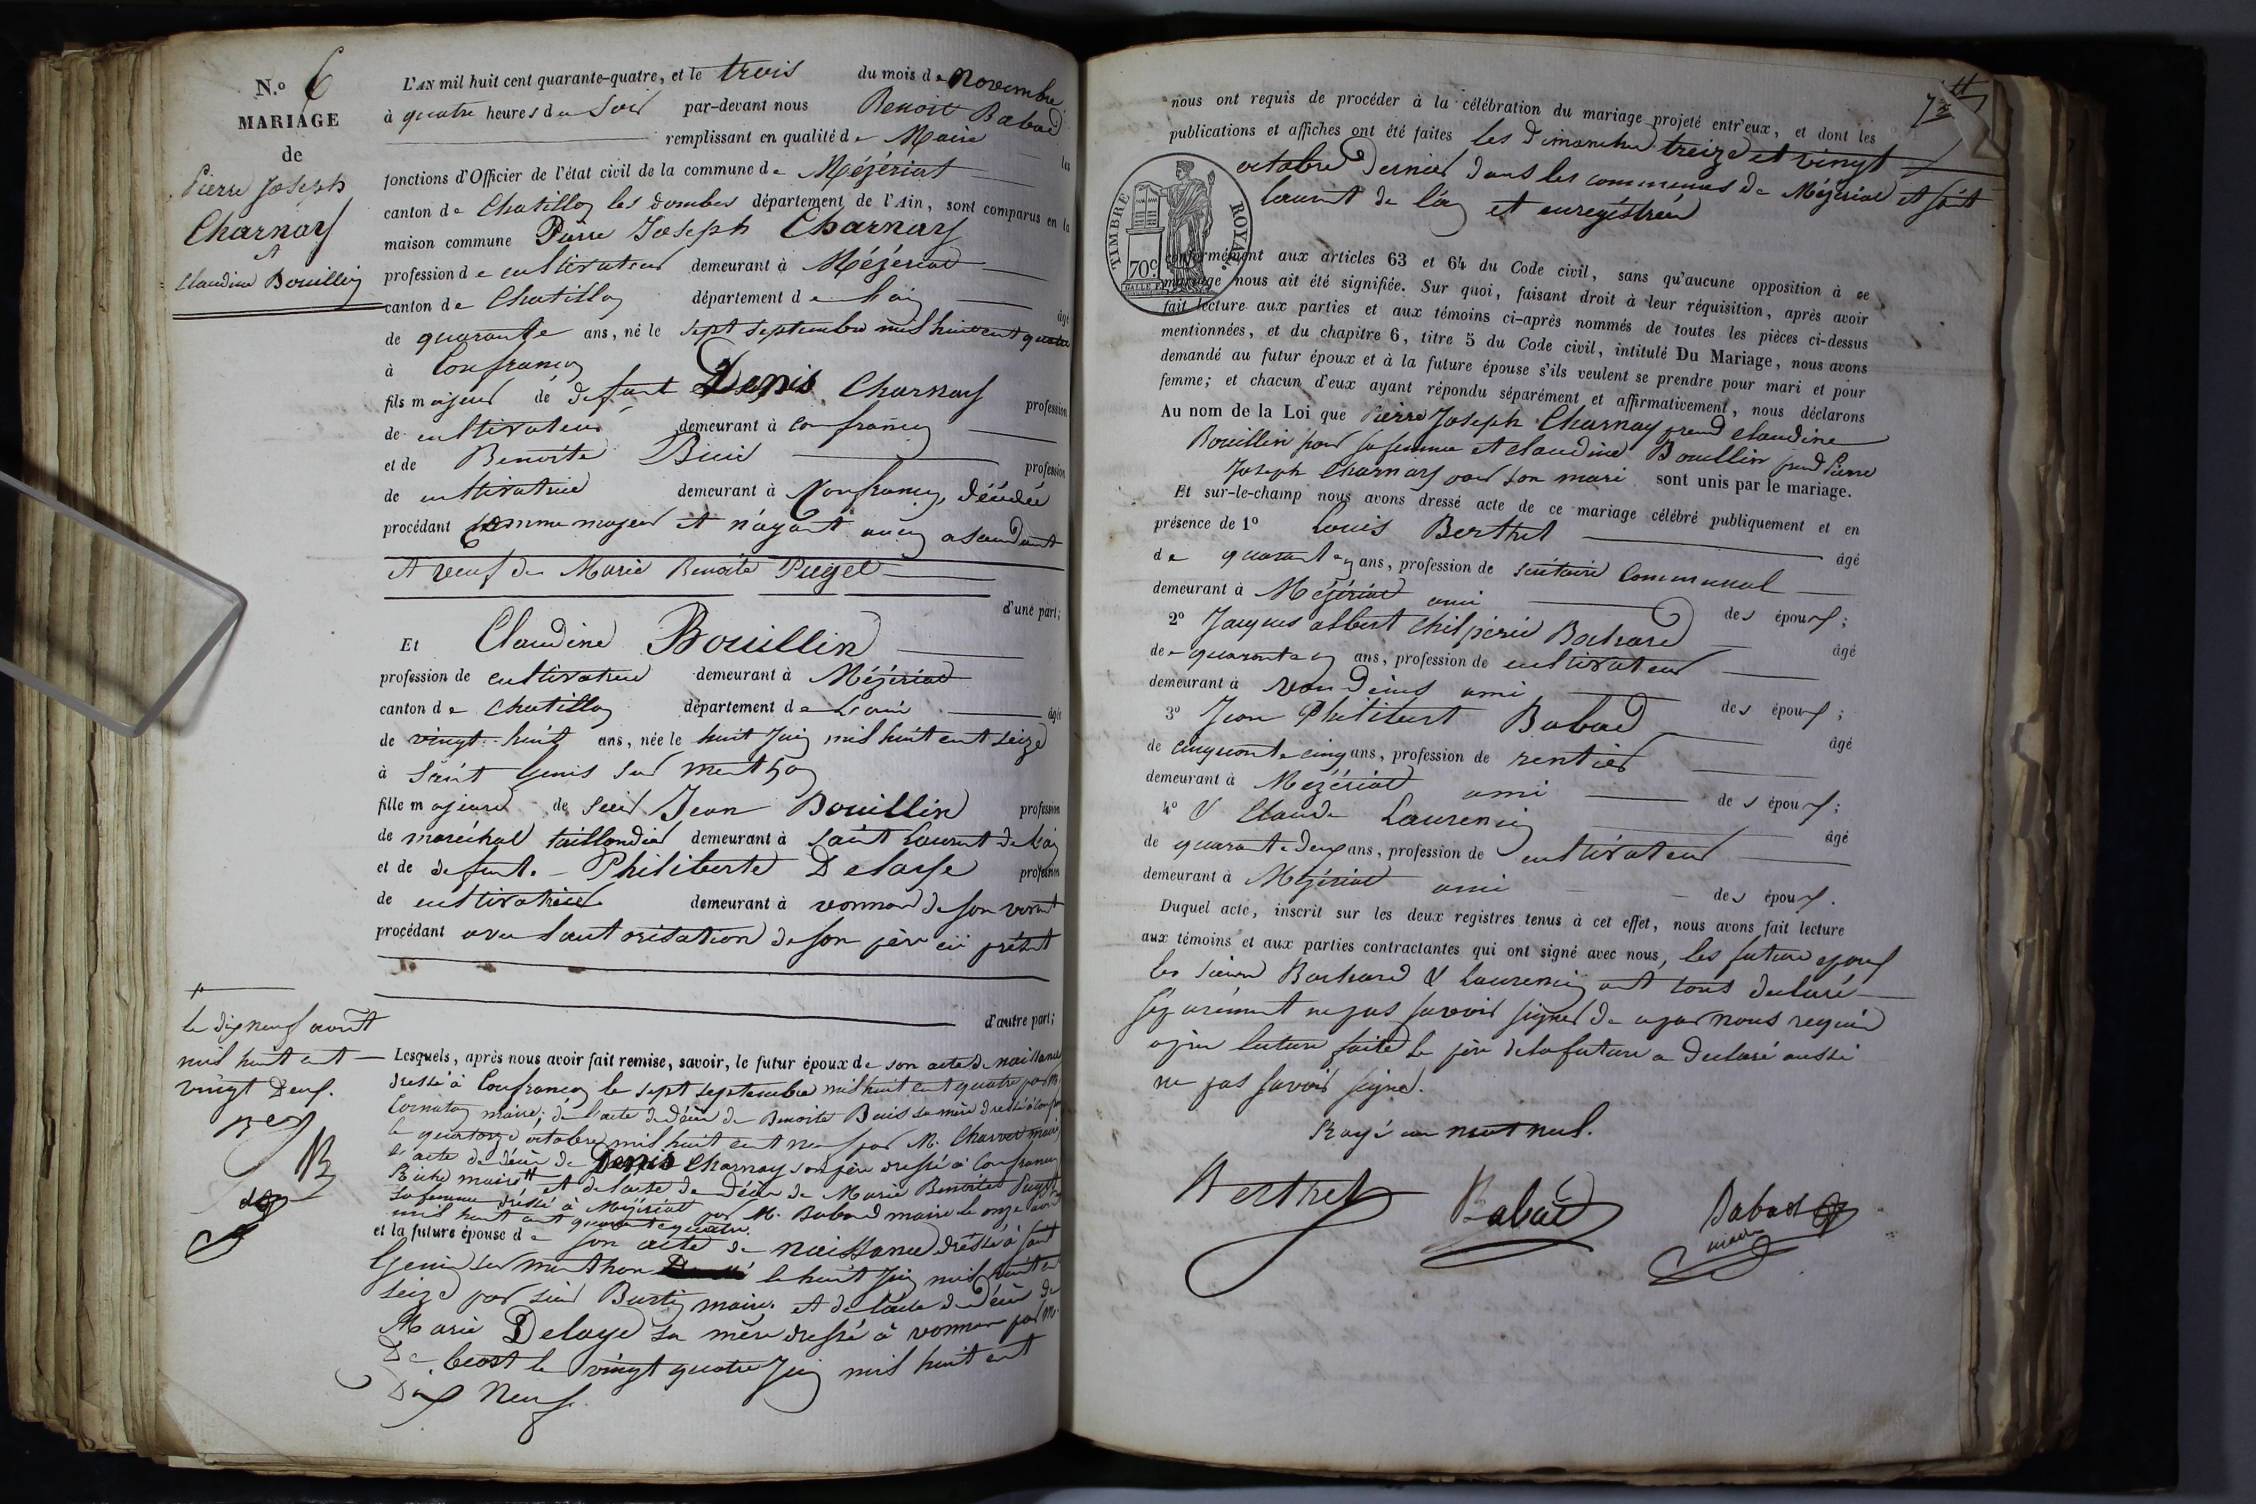 N.o 6
MARIAGE
de
Pierre Joseph
Charnay
et
Claudine Bouillin
L'AN mil huit cent quarante-quatre, et le trois du mois de Novembre
à quatre heures du Soir par-devant nous Benoit Babad
remplissant en qualité de Maire les
fonctions d'Officier de l'état civil de la commune de Mézériat
canton de Chatillon les dombes département de l'Ain, sont comparus en la
maison commune Pierre Joseph Charnay
profession de cultivateur demeurant à Mézériat
canton de Chatillon département de l'ain âgé
de quarante ans, né le sept septembre mil huit cent quatre
à Confrançon
fils majeur de defunt Denis Charnay profession
de cultivateur demeurant à Confrançon
et de Benoite Buis profession
de cultivatrice demeurant à Confrançon, décédée
procédant comme majeur et n'ayant aucun ascendant
et veuf de Marie Benoite Puget
d'une part;
Et Claudine Bouillin
profession de cultivatrice demeurant à Mézériat
canton de Chatillon département de L'ain âgée
de vingt-huit ans, née le huit Juin mil huit cent seize
à Saint Genis sur Menthon
fille majeure de sieur Jean Bouillin profession
de maréchal taillandier demeurant à Saint Laurent de l'ain
et de defunte Philiberte Delaye profession
de cultivatrice demeurant à vonnas de son vivant
procédant avec l'autorisation de son père ici présent
d'autre part;
le dix neuf avril
mil huit cent
vingt Deux.
Lesquels, après nous avoir fait remise, savoir, le futur époux de son acte de naissance
dressé à Confrançon le sept septembre mil huit cent quatre par M.
Cornaton maire; de l'acte de décès de Benoite Buis sa mère dressé à Confrançon
le quatorze octobre mil huit cent neuf par M. Charvet maire
l'acte de décès de Denis Charnay son père dressé à Confrançon
maire et de l'acte de décès de Marie Benoite Puget
sa femme dressé à Mézériat par M. Babad maire le onze avril
mil huit cent quarante quatre.
et la future épouse de son acte de naissance dressé à Saint
Genis sur Menthon le huit Juin mil huit cent
seize par sieur Burtin maire et de l'acte de décès de
Marie Delaye sa mère dressé à vonnas par M.
De beost le vingt quatre Juin mil huit cent
Dix Neuf.
nous ont requis de procéder à la célébration du mariage projeté entr'eux, et dont les
publications et affiches ont été faites les Dimanches treize et vingt
octobre dernier dans les communes de Mézériat et Saint
Laurent de l'ain et enregistrées
TIMBRE ROYAL
70c
conformément aux articles 63 et 64 du Code civil, sans qu'aucune opposition à ce
mariage nous ait été signifiée. Sur quoi, faisant droit à leur réquisition, après avoir
fait lecture aux parties et aux témoins ci-après nommés de toutes les pièces ci-dessus
mentionnées, et du chapitre 6, titre 5 du Code civil, intitulé Du Mariage, nous avons
demandé au futur époux et à la future épouse s'ils veulent se prendre pour mari et pour
femme; et chacun d'eux ayant répondu séparément et affirmativement, nous déclarons
Au nom de la Loi que Pierre Joseph Charnay prend Claudine
Bouillin pour sa femme et Claudine Bouillin prend Pierre
Joseph Charnay pour son mari sont unis par le mariage.
Et sur-le-champ nous avons dressé acte de ce mariage célébré publiquement et en
présence de 1o Louis Berthet âgé
de quarante ans, profession de secrétaire Communal
demeurant à Mézériat ami des époux;
2o Jacques albert Chilpéric Bochard âgé
de quarante ans, profession de cultivateur
demeurant à vandeins ami des époux;
3o Jean Philibert Babad âgé
de cinquante cinq ans, profession de rentier
demeurant à Mézériat ami des époux;
4o Claude Laurencin âgé
de quarante deux ans, profession de cultivateur
demeurant à Mézériat ami des époux.
Duquel acte, inscrit sur les deux registres tenus à cet effet, nous avons fait lecture
aux témoins et aux parties contractantes qui ont signé avec nous, les futurs époux
les sieurs Bochard & Laurencin ont tous déclaré
séparément ne pas savoir signer de ce par nous requis
après lecture faite le père de la future a déclaré aussi
ne pas savoir signer.
Rayé un mot nul.
Berthet Babad Babad
maire